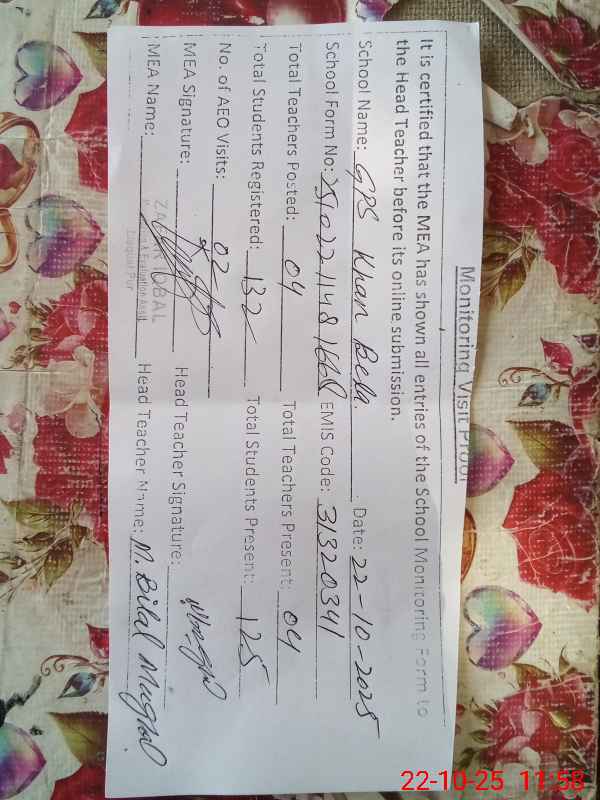 Monitoring Visit Proof
It is certified that the MEA has shown all entries of the School Monitoring Form to
the Head Teacher before its online submission.
School Name: GPS Khan Bela. Date: 22-10-2025
School Form No: EMIS Code: 31320341
Total Teachers Posted: 04 Total Teachers Present: 04
Total Students Registered: 132 Total Students Present: 125
No. of AEO Visits: 02
MEA Signature: Head Teacher Signature:
MEA Name: ZAFAR IQBAL Head Teacher Name: M. Bilal Mughal
Liaquat Pur
22-10-25 11:58